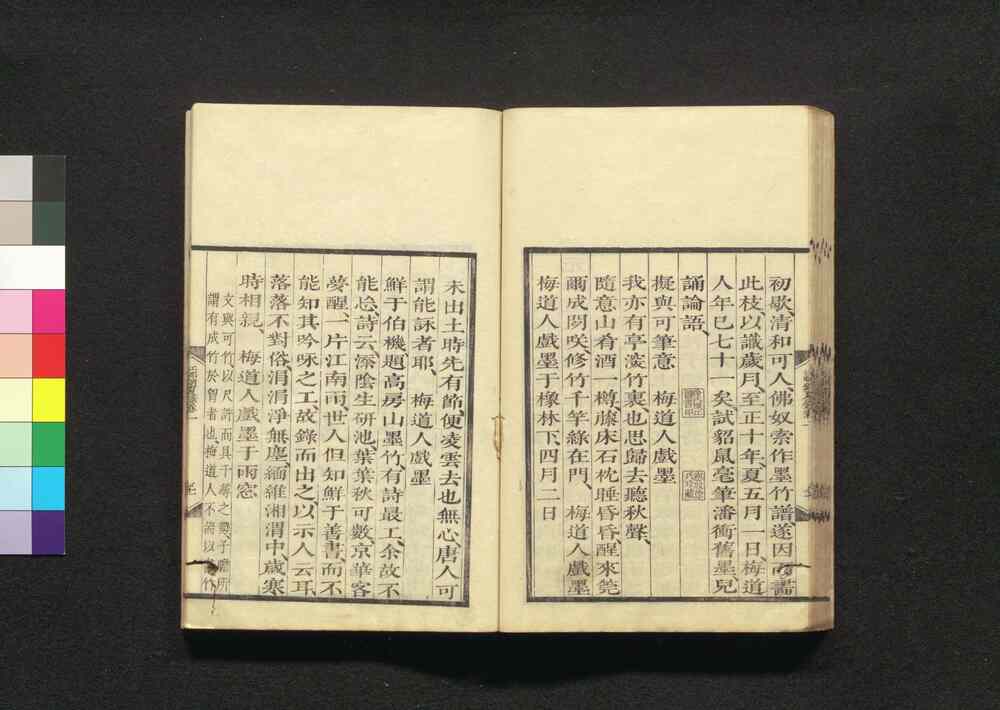 初歇清和可人佛奴索作墨竹譜遂因而畫
此枝以識歲月至正十年夏五月一日梅道
人年已七十一矣試貂鼠毫筆潘衡舊墨兒
誦論語
擬與可筆意　梅道人戲墨
我亦有亭深竹裏也思歸去聽秋聲
隨意山肴酒一樽藤床石枕睡昏昏醒來筦
爾成閑咲修竹千竿綠在門　梅道人戲墨
梅道人戲墨于橡林下四月二日
未出土時先有節便凌雲去也無心唐人可
謂能詠者耶　梅道人戲墨
鮮于伯機題高房山墨竹有詩最工余故不
能忘詩云涤陰生研池葉葉秋可數京華客
夢醒一片江南雨世人但知鮮于善書而不
能知其吟咏之工故錄而出之以示人云耳
落落不對俗涓涓淨無塵緬維湘渭中歲寒
時相親　梅道人戲墨于雨窓
文與可竹以尺許而具千尋之勢子瞻所
謂有成竹於胷者也梅道人不